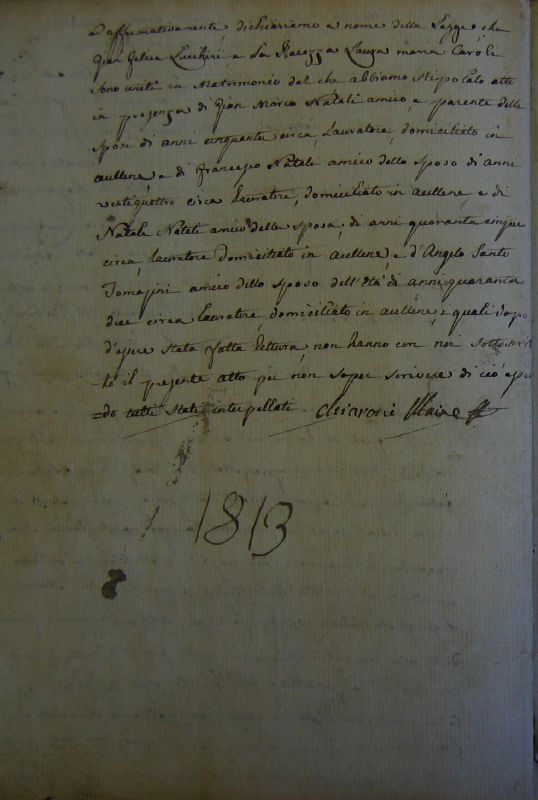 ed affirmativamente dichiariamo a nome della Legge, che
Gian Felice Luccheri e La Ragazza Laura maria Caroli
sono uniti in Matrimonio del che abbiamo stipolato atto
in presenza di Gian Marco Natali amico e parente delli
sposi di anni cinquanta circa, Lavratore, domiciliato in
aullene, e di Francesco Natali amico dello sposo di anni
ventiquattro circa lavratore, domiciliato in aullene, e di
Natale Natali amico della sposa, di anni quaranta cinque
circa, lavratore domiciliato in aullene, e d'Angelo Santo
Tomasini amico dello sposo dell'età di anni quaranta
due circa lavratore, domiciliato in aullene, e quali dopo
d'essere stata fatta lettura, non hanno con noi sottoscrit
to il presente atto per non saper scrivere di ciò essen
=do tutti stati interpellati. chiaroni Maire
1813